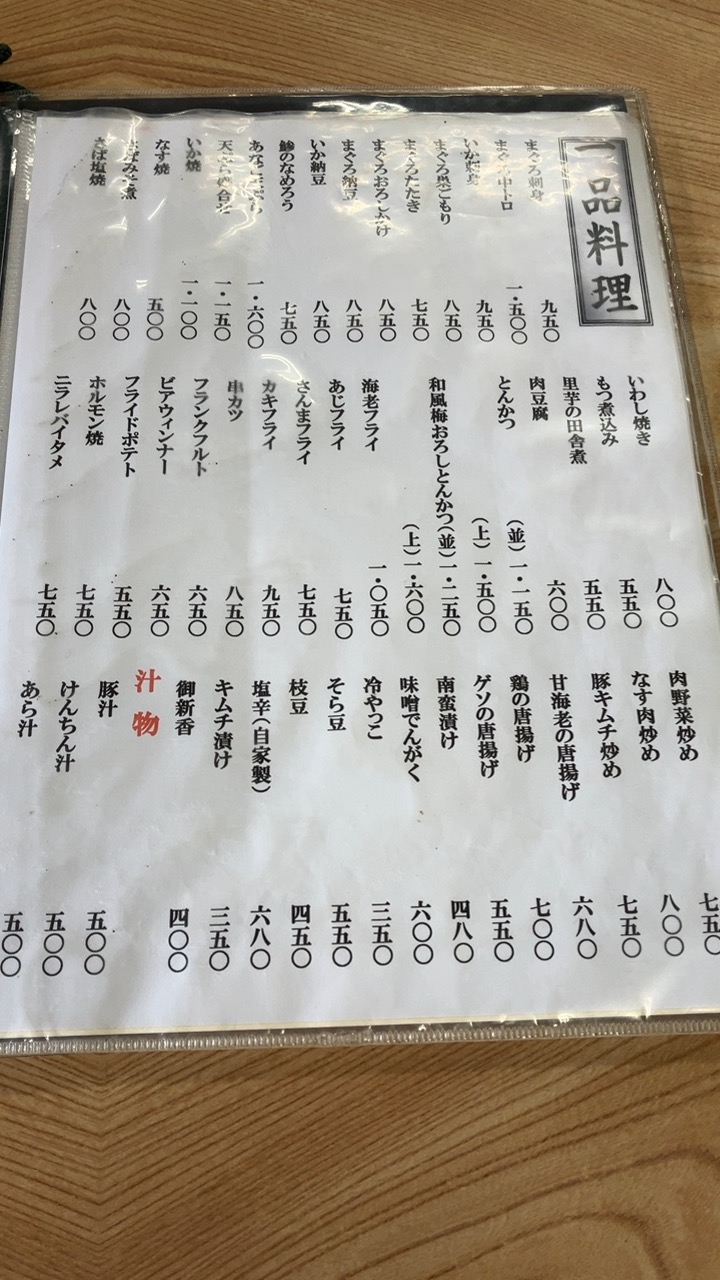 一品料理
まぐろ刺身 九五〇
まぐろ中トロ 一・五〇〇
いか刺身 九五〇
まぐろ巣ごもり 八五〇
まぐろたたき 七五〇
まぐろおろしかけ 八五〇
まぐろ納豆 八五〇
いか納豆 八五〇
鯵のなめろう 七五〇
あなご天ぷら 一・六〇〇
天ぷら盛合せ 一・一五〇
いか焼 一・一〇〇
なす焼 五〇〇
さばみそ煮 八〇〇
さば塩焼 八〇〇
いわし焼き 八〇〇
もつ煮込み 五五〇
里芋の田舎煮 五五〇
肉豆腐 六〇〇
とんかつ (並)一・一五〇
(上)一・五〇〇
和風梅おろしとんかつ(並)一・二五〇
(上)一・六〇〇
海老フライ 一・〇五〇
あじフライ 七五〇
さんまフライ 七五〇
カキフライ 九五〇
串カツ 八五〇
フランクフルト 六五〇
ビアウィンナー 六五〇
フライドポテト 五五〇
ホルモン焼 七五〇
ニラレバイタメ 七五〇
肉野菜炒め 七五〇
なす肉炒め 八〇〇
豚キムチ炒め 七五〇
甘海老の唐揚げ 六八〇
鶏の唐揚げ 七〇〇
ゲソの唐揚げ 五五〇
南蛮漬け 四八〇
味噌でんがく 六〇〇
冷やっこ 三五〇
そら豆 五五〇
枝豆 四五〇
塩辛(自家製) 六八〇
キムチ漬け 三五〇
御新香 四〇〇
汁物
豚汁 五〇〇
けんちん汁 五〇〇
あら汁 五〇〇